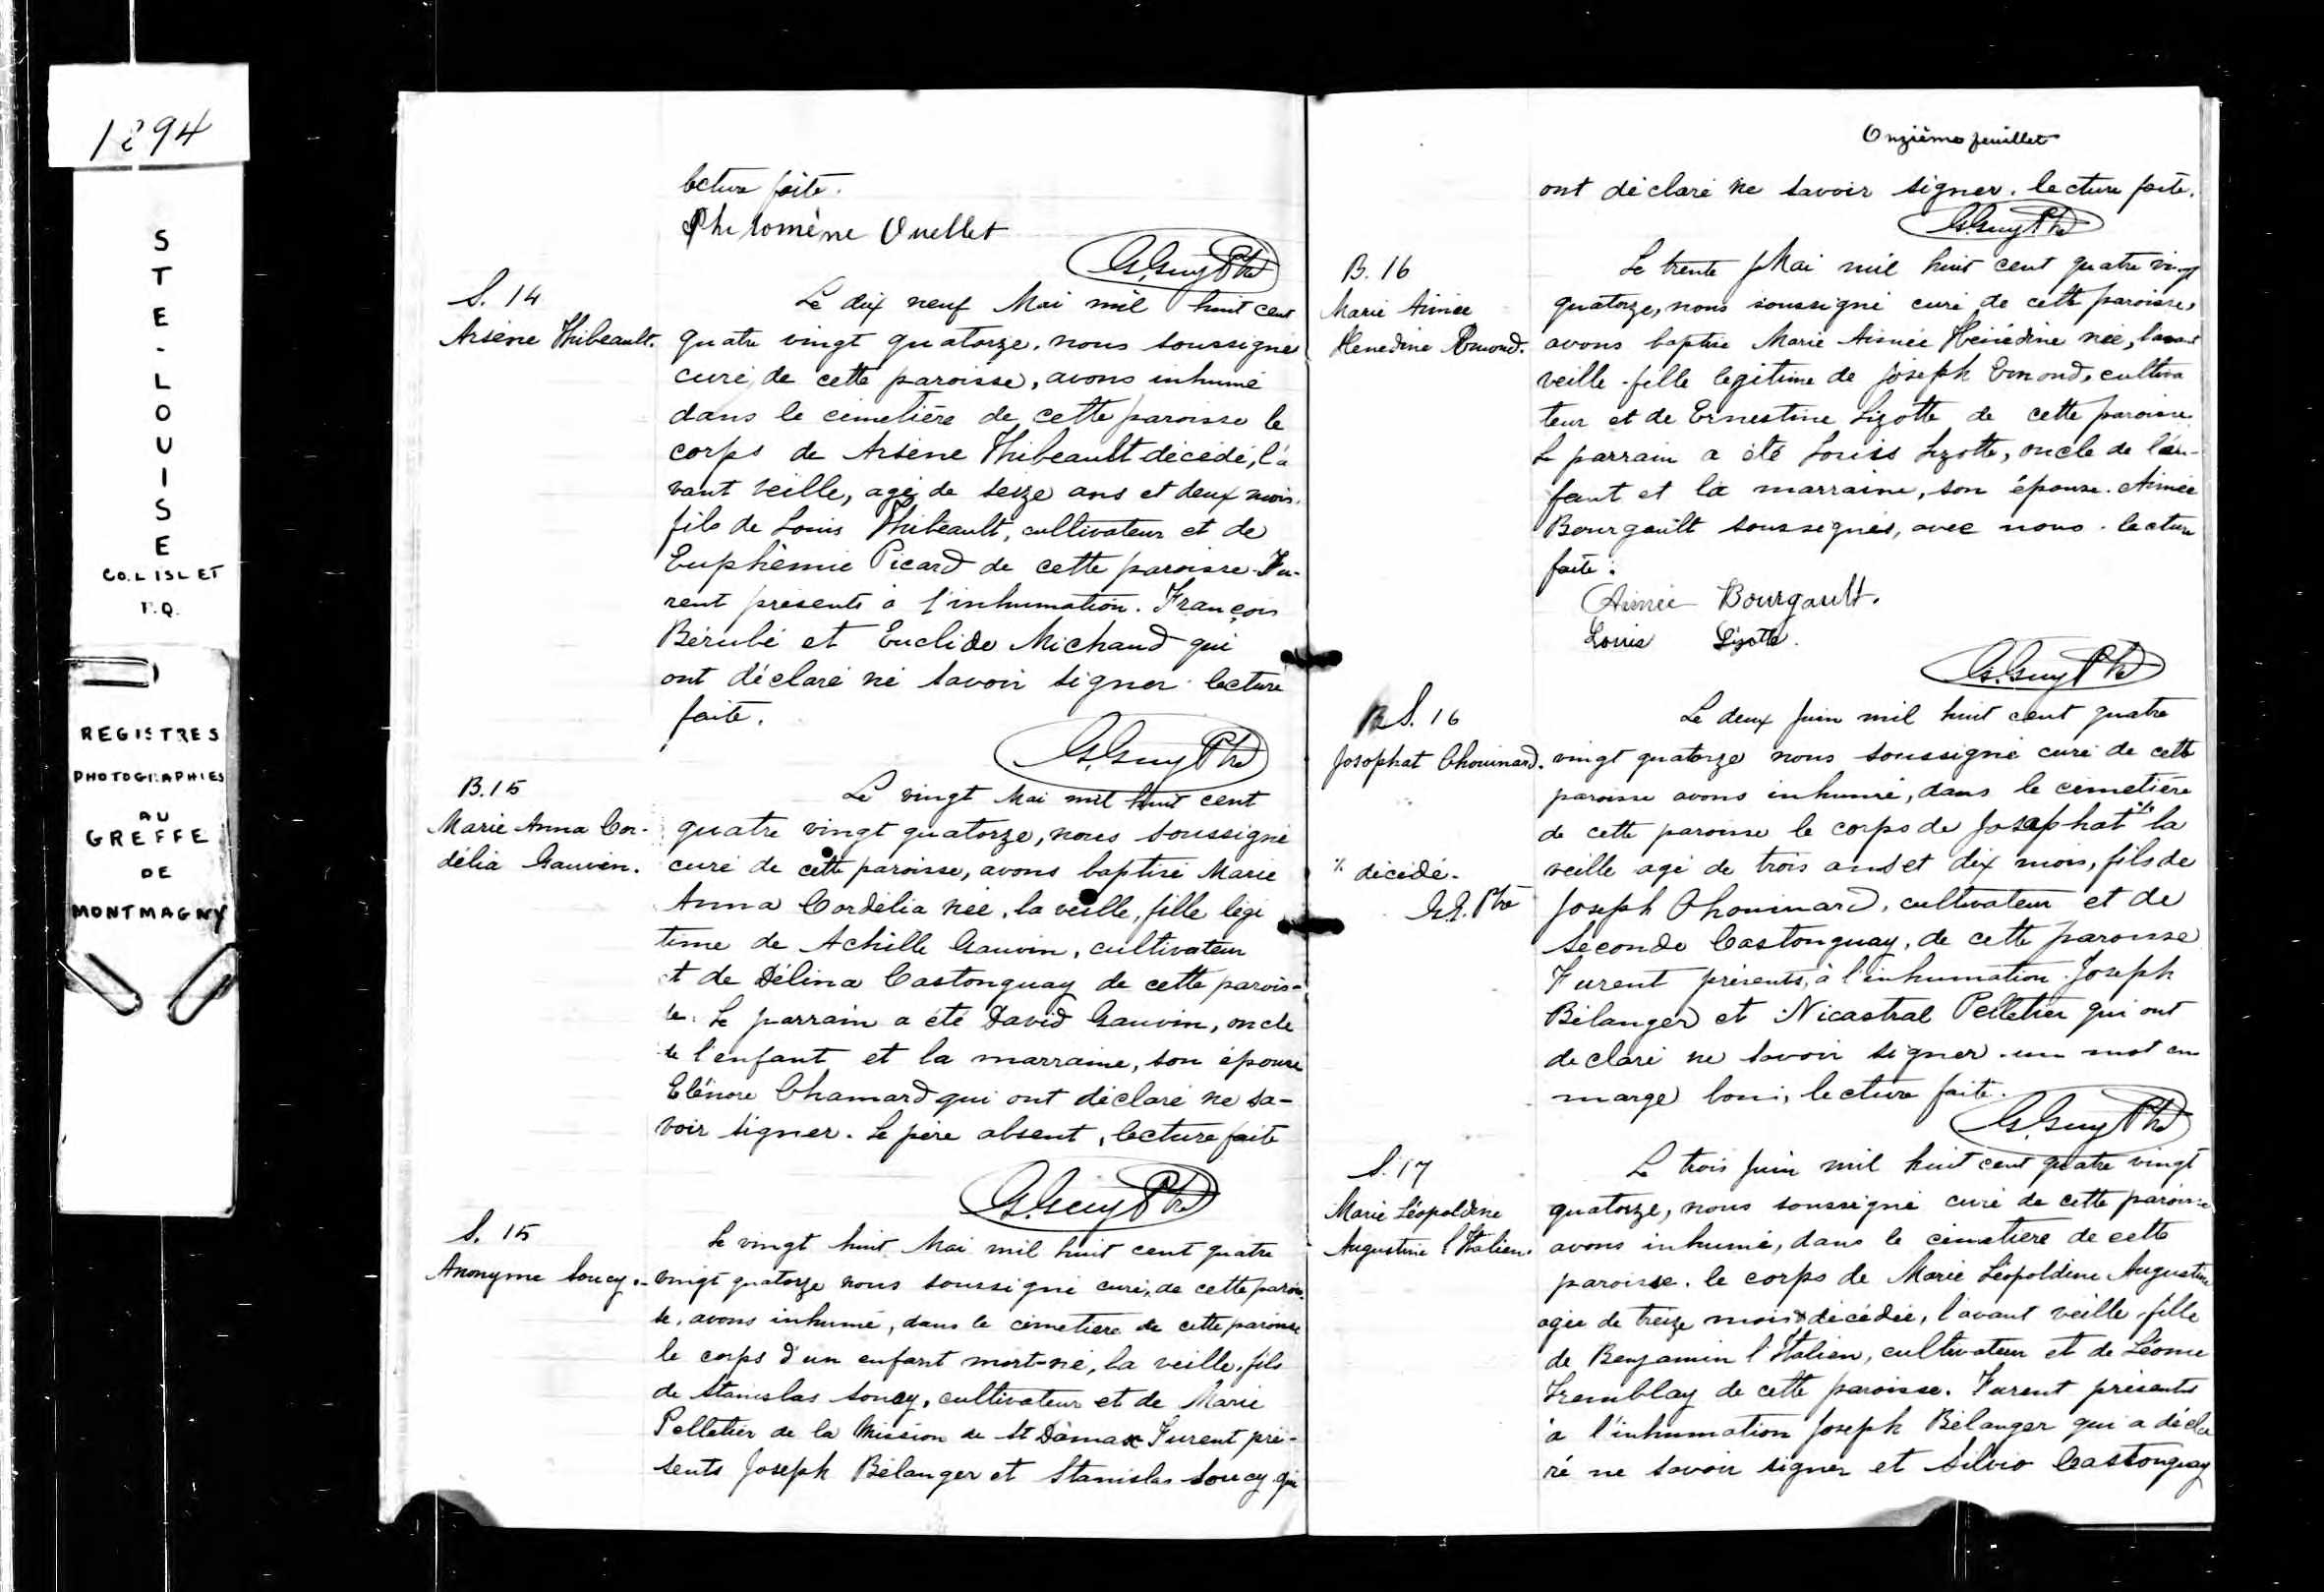 1894
STE-LOUISE
CO. L'ISLET
P.Q.
REGISTRES
PHOTOGRAPHIES
AU
GREFFE
DE
MONTMAGNY
lecture faite.
Philomène Ouellet
G. Guy Ptre
S. 14
Arsène Thibeault.
Le dix neuf Mai mil huit cent
quatre vingt quatorze, nous soussigné
curé, de cette paroisse, avons inhumé
dans le cimetière de cette paroisse le
corps de Arsène Thibeault décédé, l'a
vant veille, agé de seize ans et deux mois,
fils de Louis Thibeault, cultivateur et de
Euphémie Picard de cette paroisse. Fu-
rent présents à l'inhumation. François
Bérubé et Euclide Michaud qui
ont déclaré ne savoir signer lecture
faite.
G. Guy Ptre
B. 15
Marie Anna Cor-
délia Gauvin.
Le vingt Mai mil huit cent
quatre vingt quatorze, nous soussigné
curé de cette paroisse, avons baptisé Marie
Anna Cordélia née, la veille, fille légi
time de Achille Gauvin, cultivateur
et de Délina Castonguay de cette parois-
se. Le parrain a été David Gauvin, oncle
de l'enfant et la marraine, son épouse
Elénore Chamard qui ont déclaré ne sa-
voir signer. Le père absent, lecture faite
G. Guy Ptre
S. 15
Anonyme Soucy.
Le vingt huit Mai mil huit cent quatre
vingt quatorze nous soussigné curé, de cette parois
se, avons inhumé, dans le cimetière de cette paroisse
le corps d'un enfant mort-né, la veille, fils
de Stanislas Soucy, cultivateur et de Marie
Pelletier de la Mission de St Damase Furent pré-
sents Joseph Bélanger et Stanislas Soucy qui
Onzième feuillet
ont déclaré ne savoir signer. lecture faite.
G. Guy Ptre
B. 16
Marie Aimée
Henedine Emond.
Le trente Mai mil huit cent quatre vingt
quatorze, nous soussigné curé de cette paroisse,
avons baptisé Marie Aimée Hénédine née, l'avant
veille fille légitime de Joseph Emond, cultiva
teur et de Ernestine Lizotte de cette paroisse
Le parrain a été Louis Lizotte, oncle de l'en-
fant et la marraine, son épouse. Aimée
Bourgault soussignés, avec nous. lecture
faite.
Aimée Bourgault.
Louis Lizotte.
G. Guy Ptre
S. 16
Josophat Chouinard.
Le deux Juin mil huit cent quatre
vingt quatorze nous soussigné curé de cette
paroisse avons inhumé, dans le cimetière
de cette paroisse le corps de Josaphat % la
% décédé.
G.G. Ptre
veille agé de trois ans et dix mois, fils de
Joseph Chouinard, cultivateur et de
Seconde Castonguay, de cette paroisse
Furent présents, à l'inhumation. Joseph
Bélanger et Nicastral Pelletier qui ont
declaré ne savoir signer. un mot en
marge bon, lecture faite.
G. Guy Ptre
S. 17
Marie Léopoldine
Augustine l'Italien.
Le trois Juin mil huit cent quatre vingt
quatorze, nous soussigné curé de cette paroisse
avons inhumé, dans le cimetière de cette
paroisse. le corps de Marie Léopoldine Augustine
agée de treize mois décédée, l'avant veille fille
de Benjamin l'Italien, cultivateur et de Léonie
Tremblay de cette paroisse. Furent présents
à l'inhumation Joseph Bélanger qui a décla
ré ne savoir signer et Silvio Castonguay